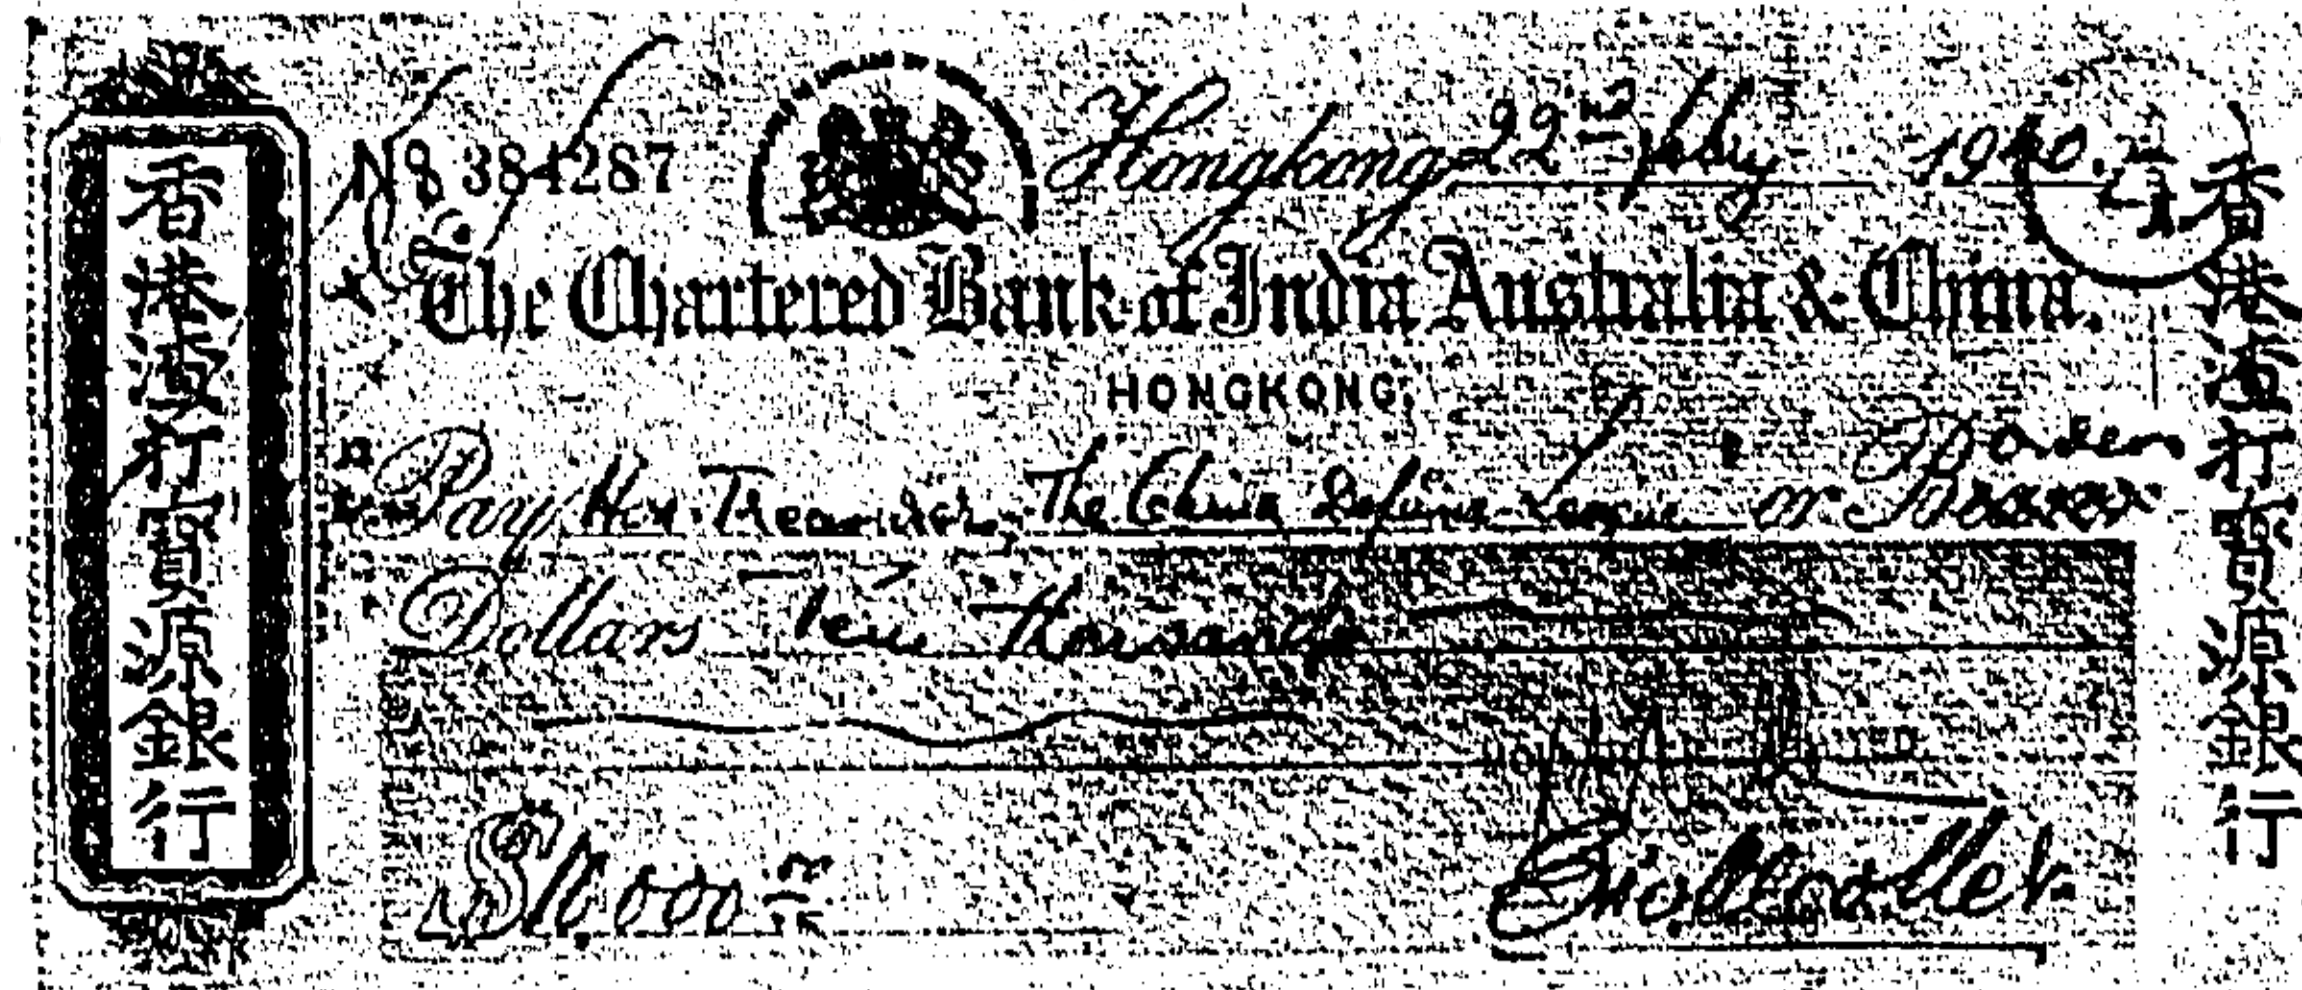 香港渣打寶源銀行
No 384287
Hongkong 22nd Feby 1940.
The Chartered Bank of India Australia & China.
HONGKONG.
Pay Hon. Treasurer, The China Defence League or Bearer
Order
Dollars Ten thousand
$10,000
香港渣打寶源銀行